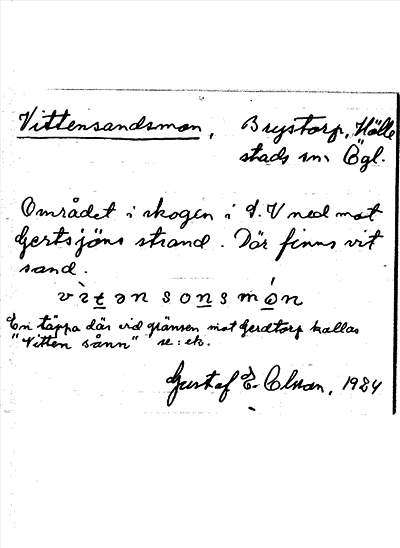 Vittensandsmon, Brystorp, Hälle
stads sn. Ögl.
Området i skogen i S.V ned mot
Gertsjöns strand. Där finns vit
sand.
vìtən sonsmón
En täppa där vid gränsen mot Gerdtorp kallas
"Vitten sånn" se: etc.
Gustaf E. Olsson, 1924